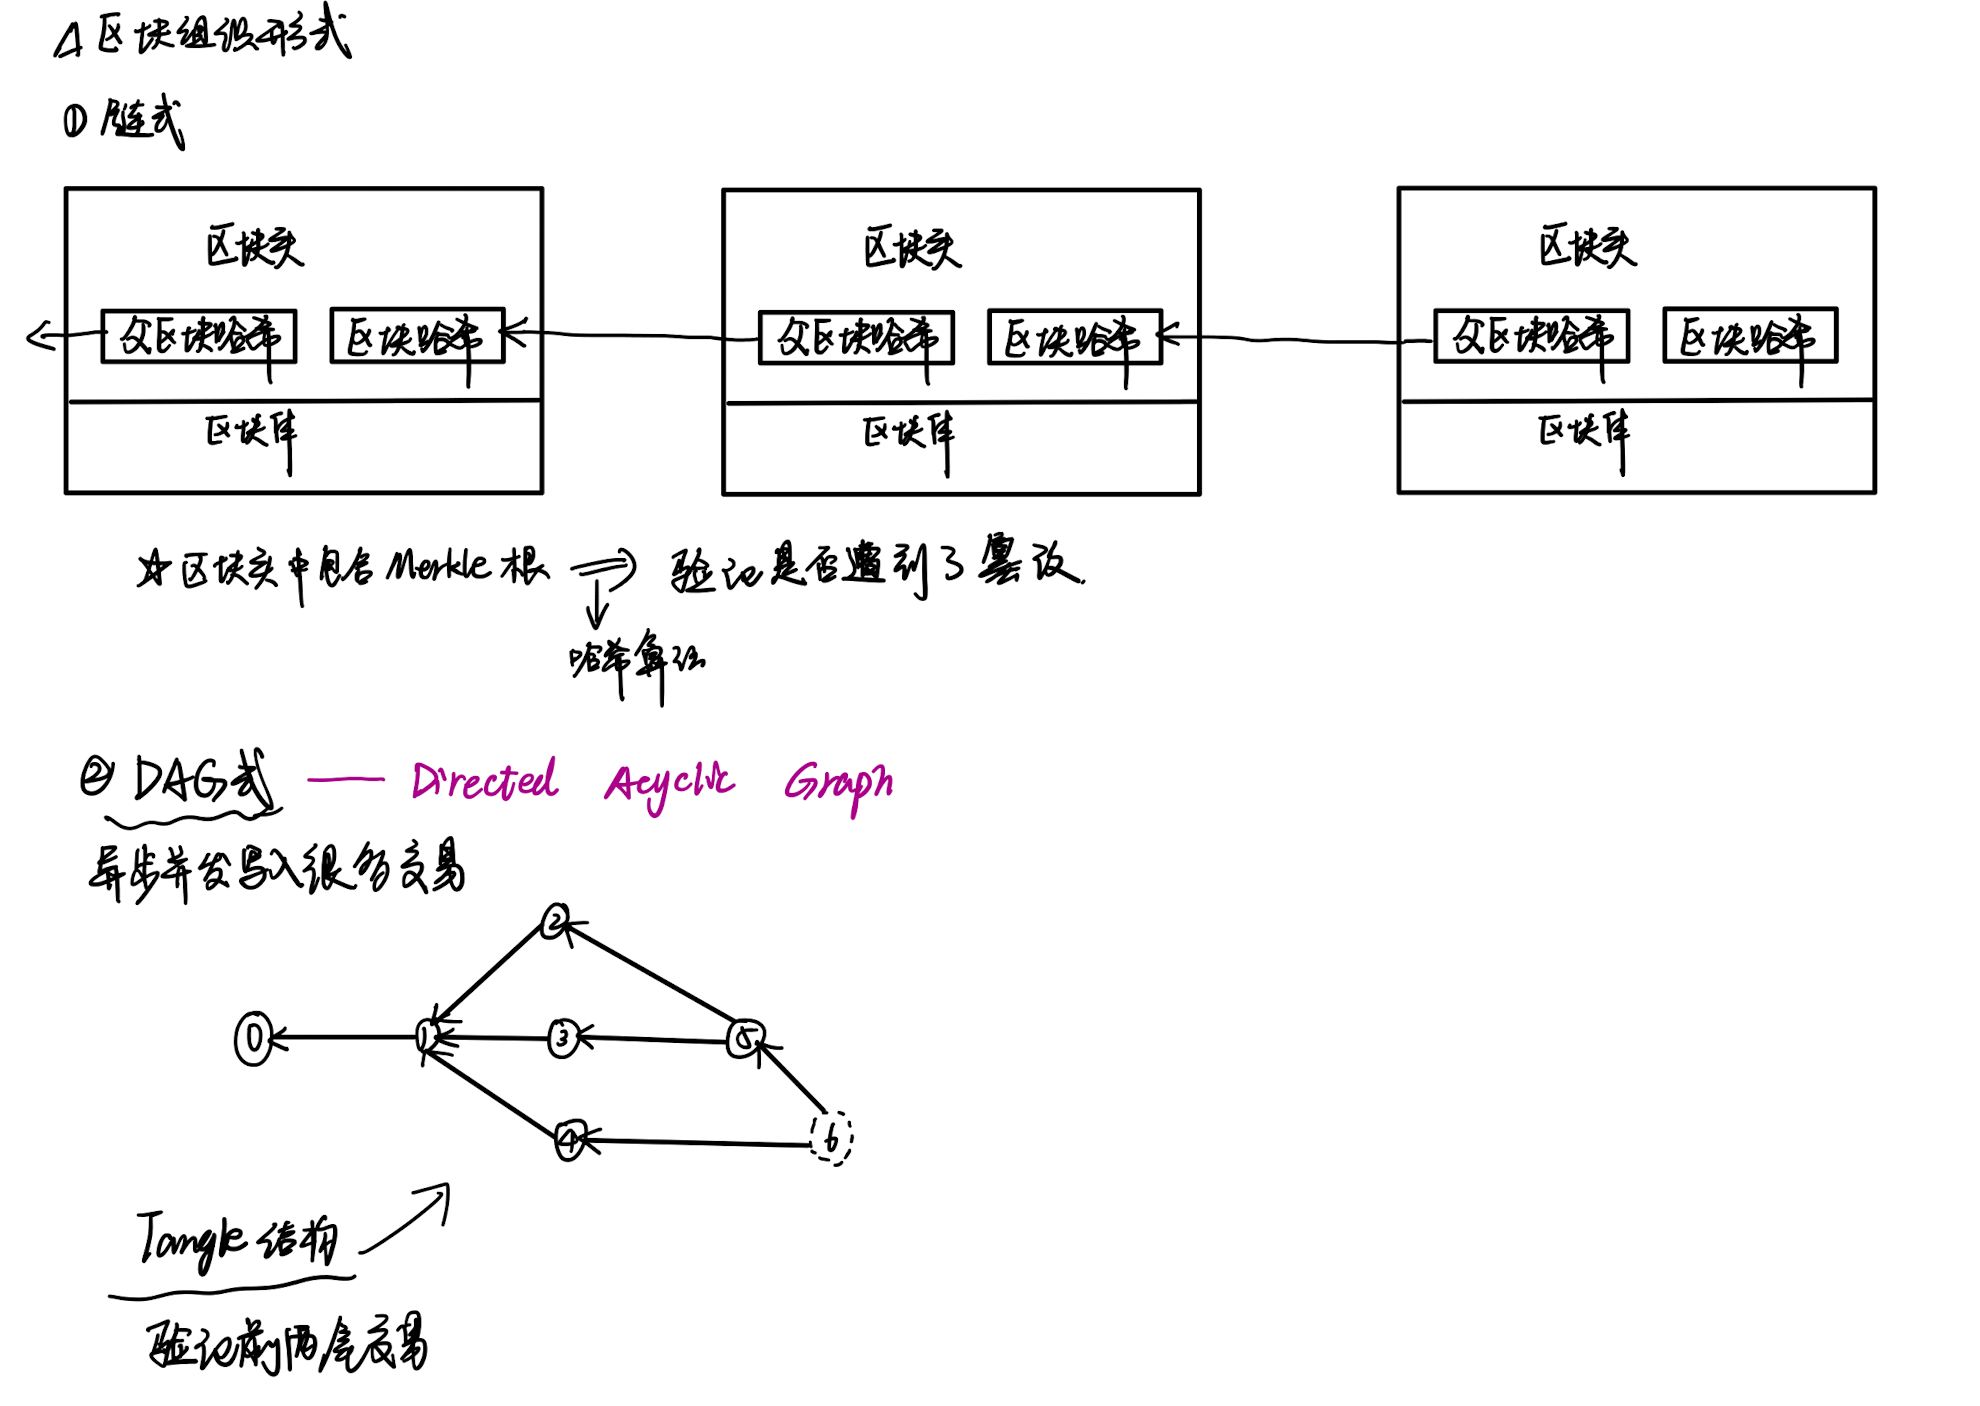 △ 区块组织形式
① 链式
区块头 区块头 区块头
父区块哈希 区块哈希 父区块哈希 区块哈希 父区块哈希 区块哈希
区块体 区块体 区块体
☆ 区块头中包含Merkle根 ⇒ 验证是否遭到了篡改.
↓
哈希算法
② DAG式 —— Directed Acyclic Graph
异步并发写入很多交易
2
0 1 3 5
4 6
Tangle结构
验证前两笔交易